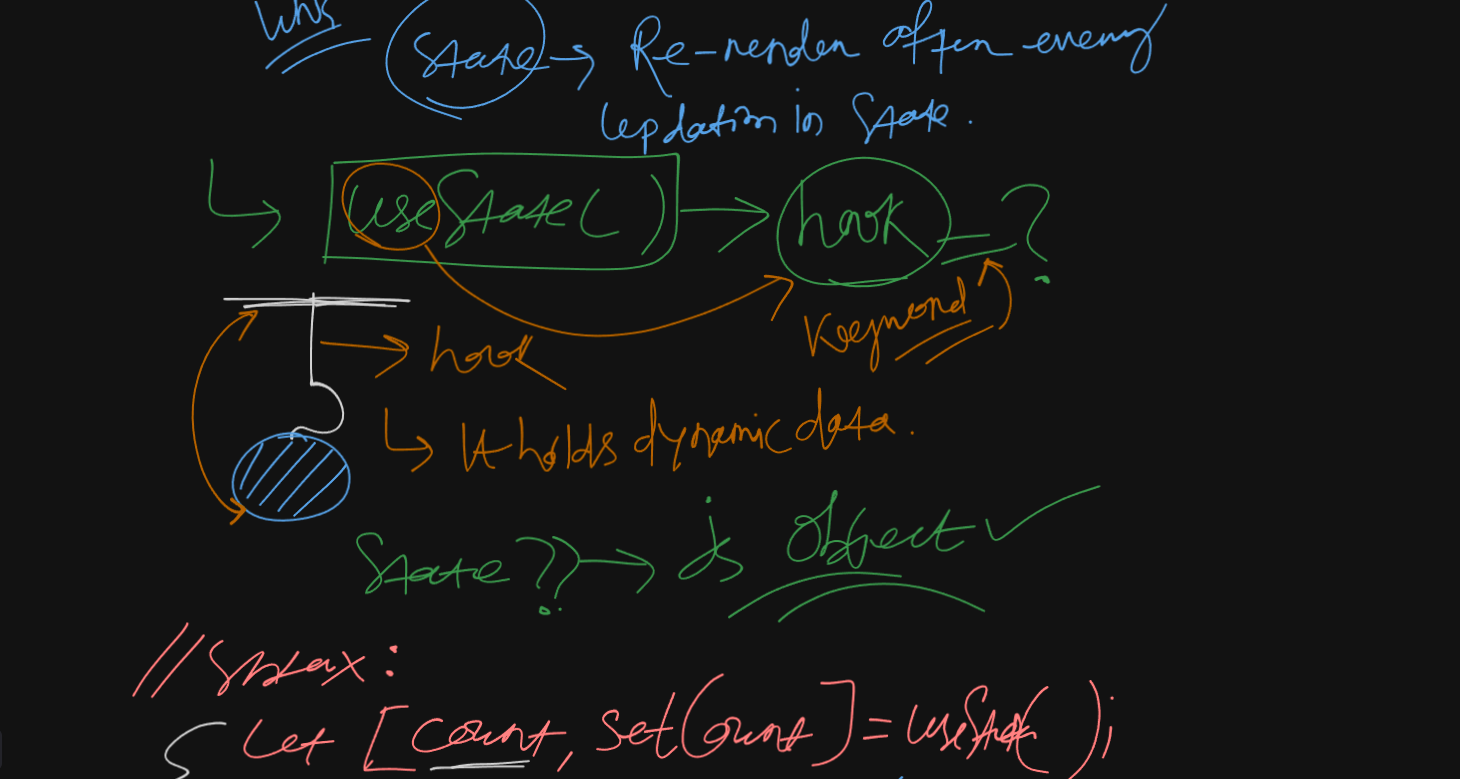 Why
State → Re-render after every
updation in State.
↳ useState() → hook = ?
Keyword
→ hook
↳ It holds dynamic data.
State ?? → Js Object ✓
// Syntax:
let [count, setCount] = useState( );